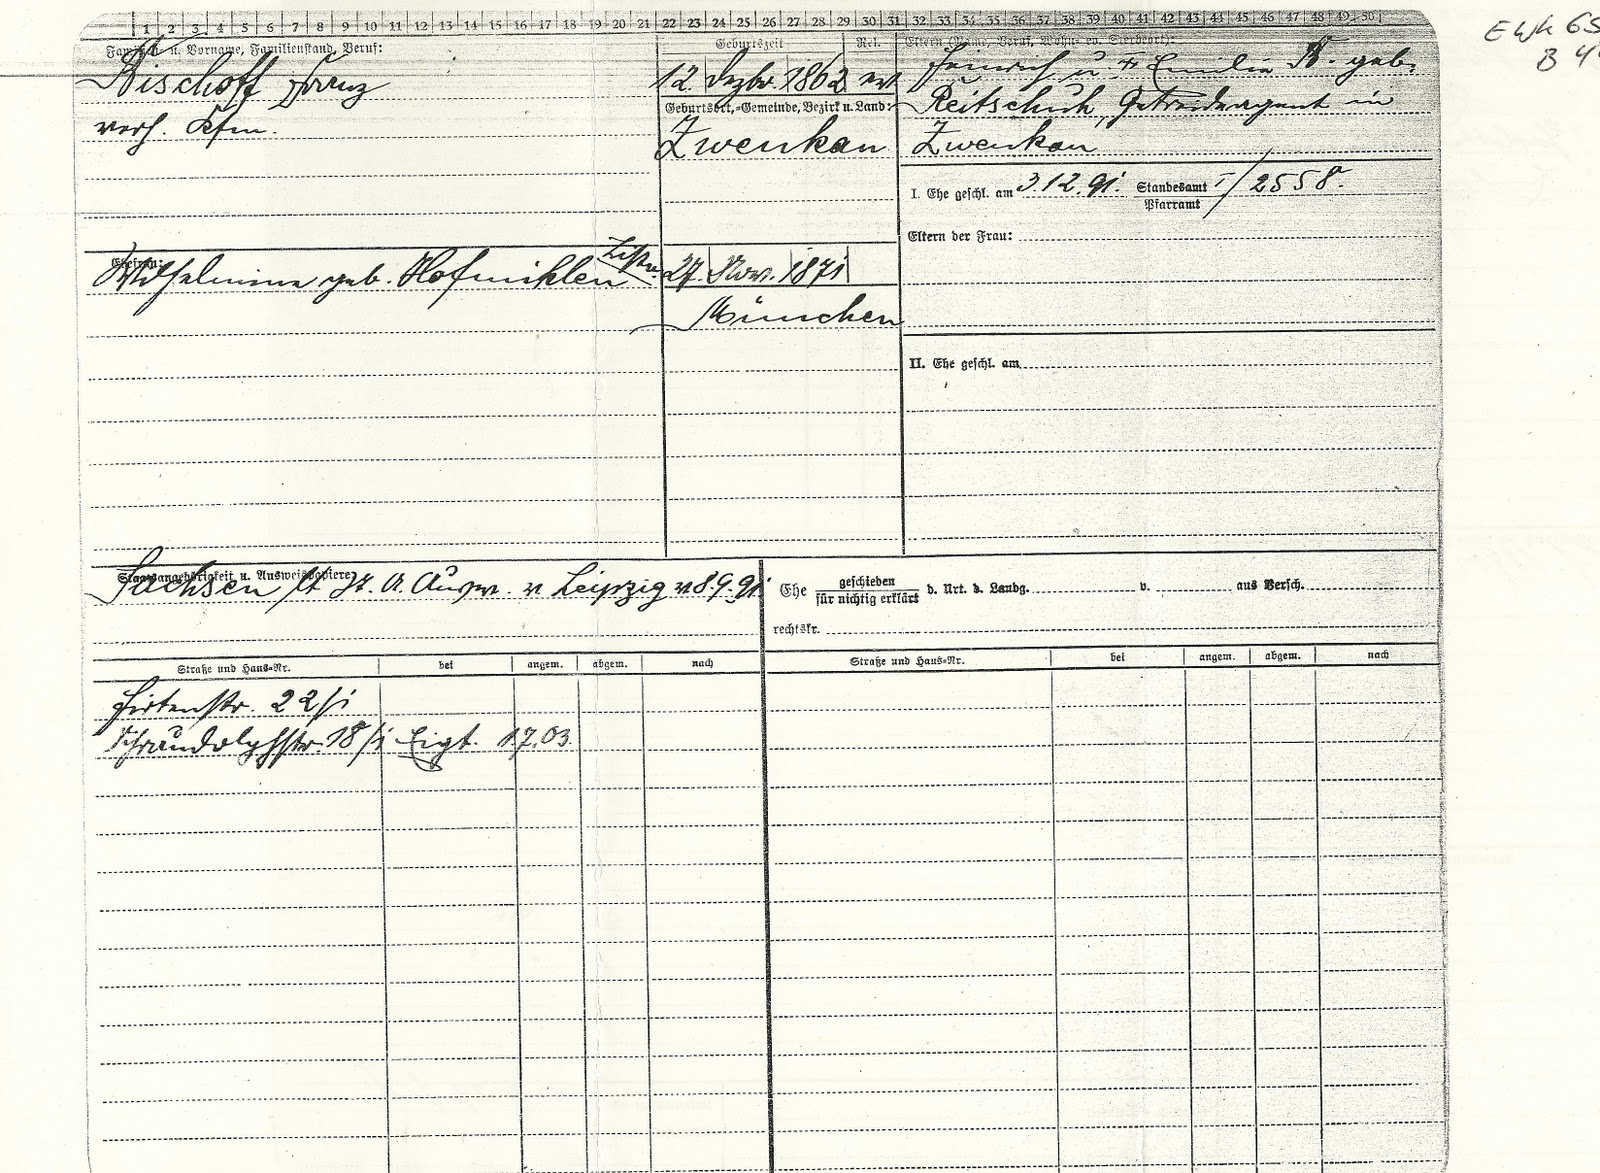 1 2 3 4 5 6 7 8 9 10 11 12 13 14 15 16 17 18 19 20 21 22 23 24 25 26 27 28 29 30 31 32 33 34 35 36 37 38 39 40 41 42 43 44 45 46 47 48 49 50
EWK 65
B 4
Familien- u. Vorname, Familienstand, Beruf:
Bischoff Franz
verh. Kfm.
Geburtszeit Rel.
12. Dezbr. 1862 ev
Geburtsort, -Gemeinde, Bezirk u. Land:
Zwenkau
Eltern (Name, Beruf, Wohn- ev. Sterbeort):
Heinrich u. Emilie B. geb.
Reitschuh, Getreideagent in
Zwenkau
I. Ehe geschl. am 3.12.91. Standesamt I/2558.
Pfarramt
Eltern der Frau:
Ehefrau:
Wilhelmine geb. Hofmiklen
27. Nov. 1871
München
II. Ehe geschl. am
Staatsangehörigkeit u. Ausweispapiere
Sachsen lt. St. A. Ausw. v. Leipzig v 8.9.91.
Ehe geschieden d. Urt. d. Landg. v. aus Versch.
für nichtig erklärt
rechtskr.
Straße und Haus-Nr. bei angem. abgem. nach Straße und Haus-Nr. bei angem. abgem. nach
Hirtenstr. 22/I
Schraudolphstr. 18/I Eigt. 1.7.03.